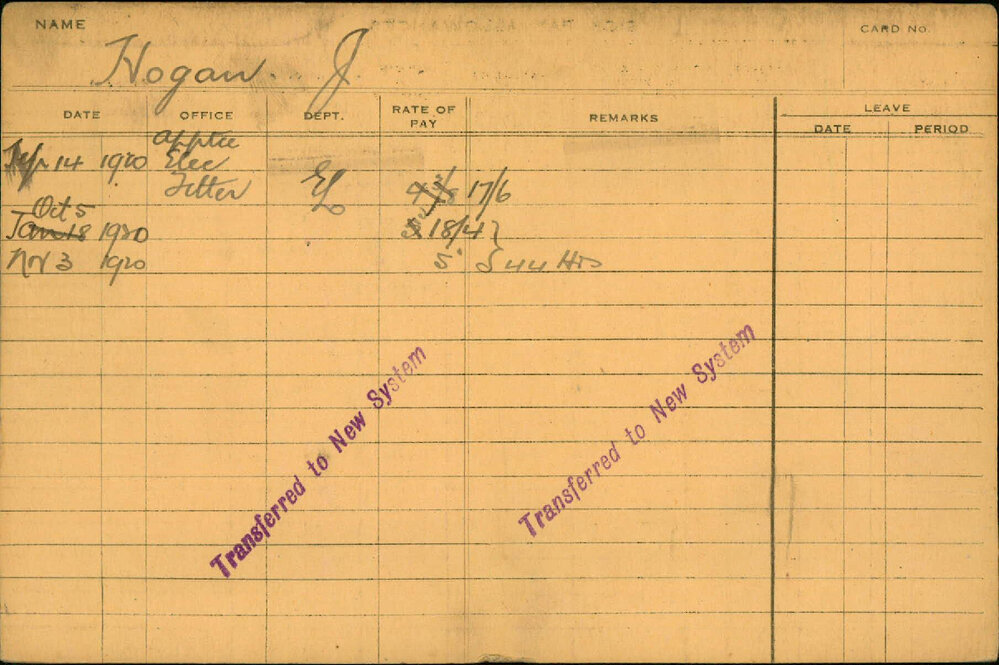 NAME
CARD NO.
Hogan J.
DATE OFFICE DEPT. RATE OF PAY REMARKS LEAVE
DATE PERIOD
Apptce
14 1920 Elec
Fitter EL 17/6
Oct 5
Jan 18 1920 18/4 }
Nov 3 1920 5 } 44 Hrs
Transferred to New System
Transferred to New System